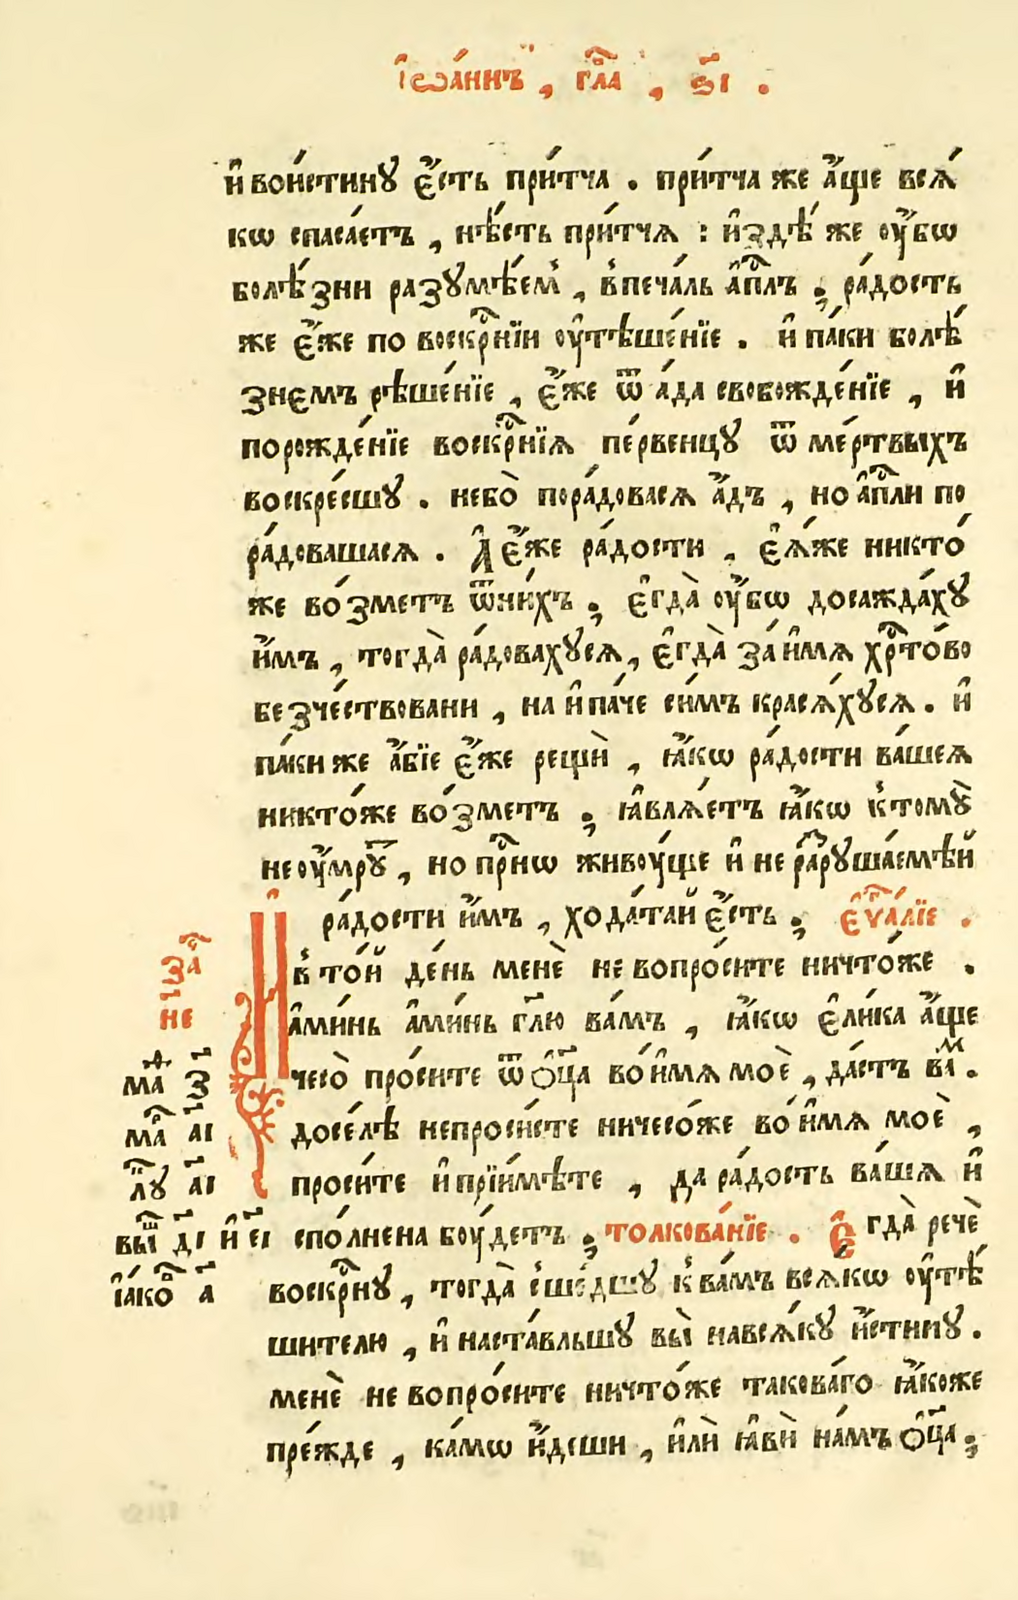 І҆ѡа́ннъ , гл҃а , ѕ҃і .
и҆ вои́стину є҆́сть при́тча . при́тча же а҆́ще вся́
кѡ спаса́етъ , нѣ́сть при́тчѧ : и҆здѣ́ же оу҆́бѡ
болѣ́зни разумѣ́ем , в̾печа́ль а҆пⷭ҇лъ ; ра́дость
же є҆́же по воскрⷭ҇нїи оу҆тѣше́нїе . и҆ па́ки болѣ́
знємъ рѣше́нїе , є҆́же ѿ а́да свобожде́нїе , и҆
порожде́нїе воскрⷭ҇нїѧ пе́рвенцу ѿ ме́ртвыхъ
воскре́сшу . небо̀ пора́довасѧ а҆́дъ , но а҆пⷭ҇ли по
ра́довашасѧ . А҆ є҆́же ра́дости , є҆ѧ́же никто́
же во́зметъ ѿни́хъ ; є҆гда̀ оу҆́бѡ досажда́ху
и҆́мъ , тогда̀ ра́довахусѧ , є҆гда̀ за́ и҆мѧ хрⷭ҇то́во
безче́ствовани , на и҆ па́че си́мъ красѧ́хусѧ . и҆
па́ки же а҆́бїе є҆́же рещѝ , ꙗ҆́кѡ ра́дости ва́шеѧ
никто́же во́зметъ ; ꙗ҆влѧ́етъ ꙗ҆́кѡ к̾тому̀
не оу҆́мрꙋ , но прⷭ҇нѡ живоу́ще и҆ не раⷥрушаемѣ́й
ра́дости и҆́мъ , хода́тай є҆́сть ; є҆ѵⷢ҇а́лїе .
В̾ то́й де́нь менѐ не вопро́сите ничто́же .
а҆ми́нь а҆ми́нь гл҃ю ва́мъ , ꙗ҆́кѡ є҆ли́ка а҆́ще
чесо̀ про́сите ѿ ѻ҆ц҃а̀ во́ и҆мѧ моѐ , да́стъ ваⷨ .
досе́лѣ непроси́сте ничесо́же во́ и҆мѧ моѐ ,
проси́те и҆ прїи́мѣте , да ра́дость ва́шѧ и҆
спо́лнена боу́детъ ; толкова́нїе . Є҆гда̀ речѐ
воскрⷭ҇ну , тогда̀ сше́дшу к̾ ва́мъ всѧ́кѡ оу҆тѣ́
шителю , и҆ наста́вльшу вы̀ навсѧ́ку и҆́стину .
менѐ не вопро́сите ничто́же такова́го ꙗ҆́коже
пре́жде , ка́мѡ и҆́деши , и҆лѝ ꙗ҆вѝ на́мъ ѻ҆ц҃а̀ ;
заⷱ҇
не
маⷴ ꙁ҃і
маⷬ҇ а҃і
лу а҃і
вы́ш д҃і и҆ є҃і
і҆а́коⷡ а҃